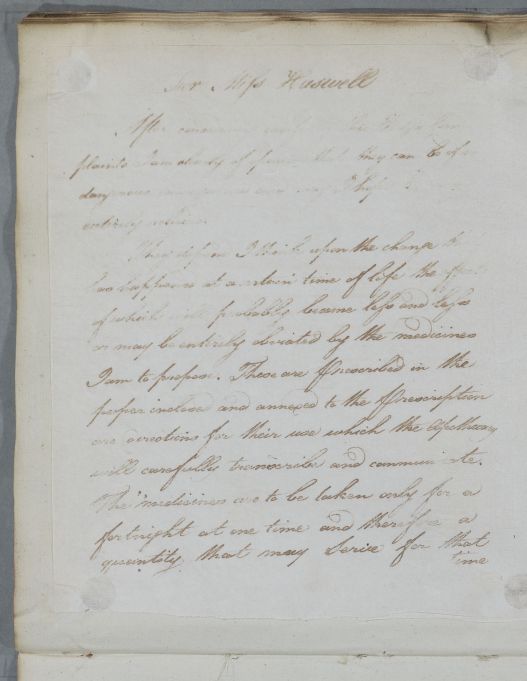 For Miss Haswell
After
plaints I am clearly of they can be of
dangerous I hope
entirely
They depend I think upon the change
has happens at a certain time of life the
of which will probably become less and less
or may be entirely obviated by the medicines
I am to propose. These are Prescribed in the
paper inclosed and annexed to the Prescription
are directions for their use which the Apothecary
will carefully transcribe and communicate.
The medicines are to be taken only for a
fortnight at one time and therefore a
quantity that may serve for that
time